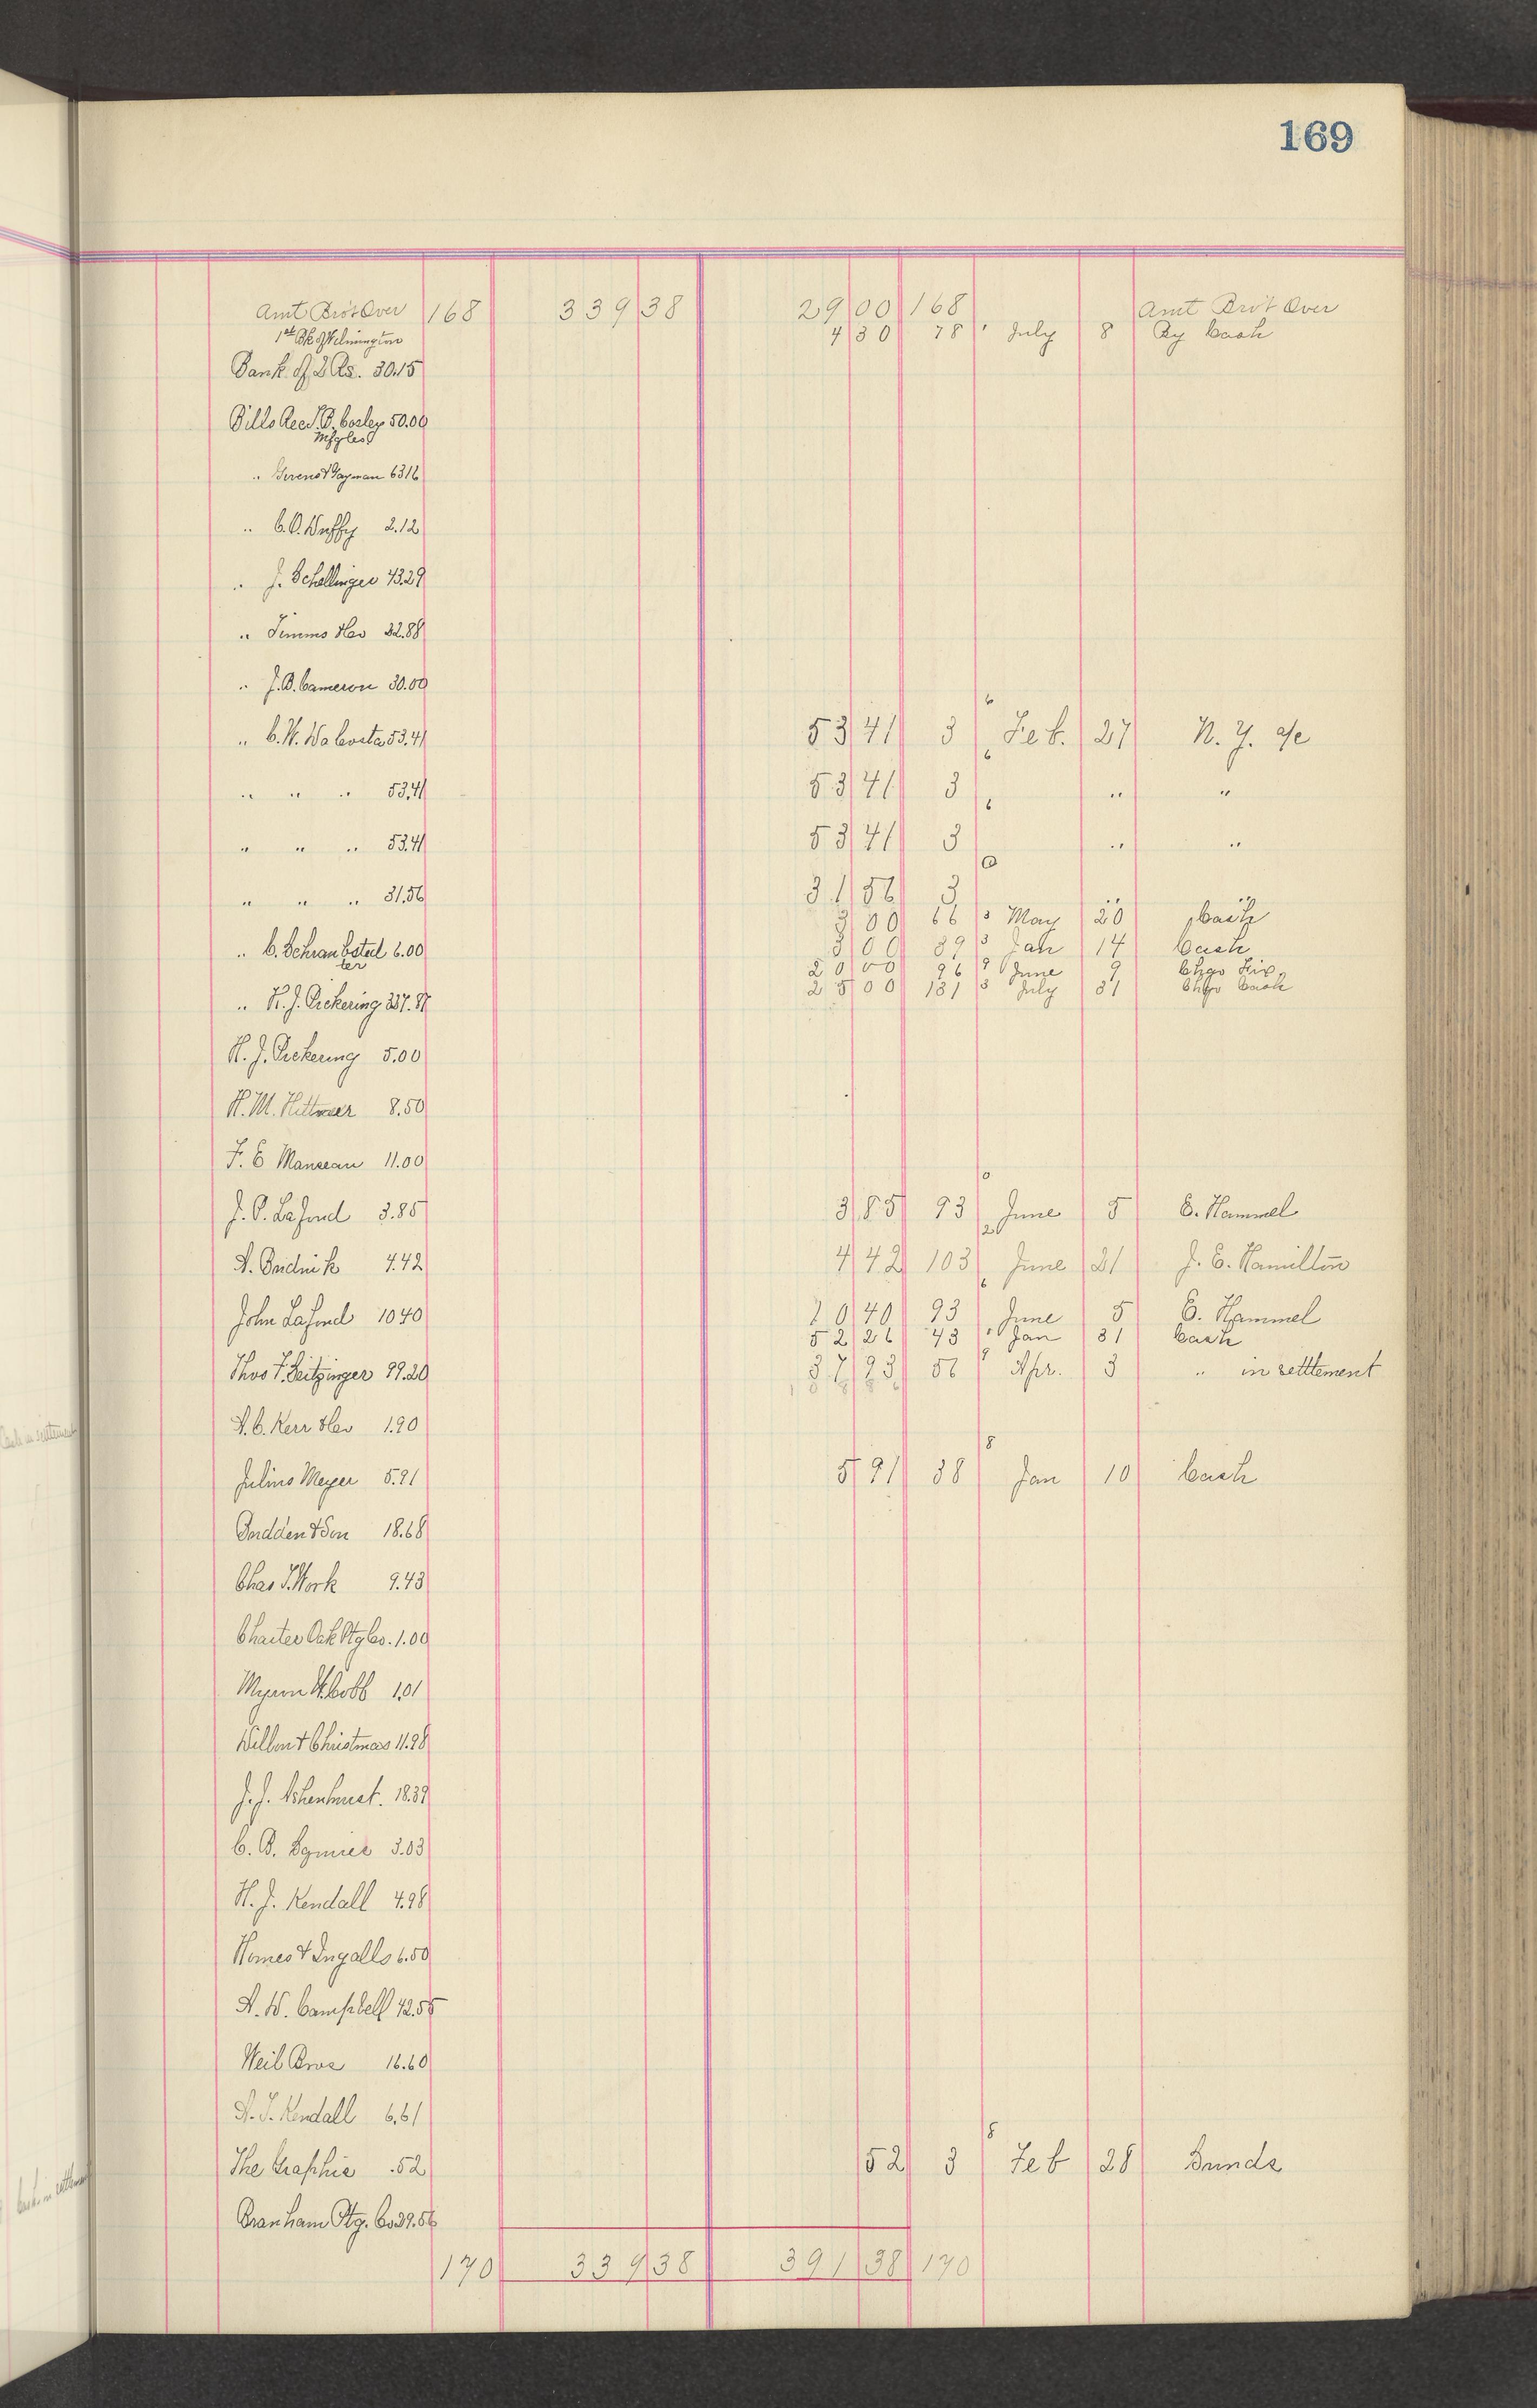 169
Amt Bro't Over 168 339 38 29 00 168 Amt Bro't Over
1st Bk of Wilmington 4 30 78 July 8 By Cash
Bank of 30.15
Bills Rec. 50.00
Mfg Co
" 63 16
" C.O. Duffy 2.12
" J. Schellinger 43.29
" Simms &Co 32.88
" J.D. Cameron 30.00
" C.W. DaCosta 53.41 53 41 3 Feb. 27 N.Y. a/c
" " " 53.41 53 41 3 " "
" " " 53.41 53 41 3 " "
" " " 31.56 31 56 3 " "
3 00 66 May 20 Cash
" C. 6.00 3 00 89 Jan 14 Cash
ter 20 00 96 June 9
" H.J. Pickering 25 00 131 July 31 Cash
H.J. Pickering 5.00
H.M. 8.50
F.E Manseau 11.00
J.O. Lafond 3.85 3 85 93 June 5 E. Hammel
4.42 4 42 103 June 21 J.E. Hamilton
John Lafond 10 40 10 40 93 June 5 E. Hammel
52 26 43 Jan 31 Cash
Thos F. Leitzinger 99.20 37 93 56 Apr. 3 " in settlement
A.C. Kerr &Co 1.90
Julius Meyer 5.91 5 91 38 Jan 10 Cash
& Son 18.68
Chas S. York 9.43
Charter Oak Ptg Co. 1.00
Myron W. Cobb 1.01
Dillon & Christmas 11.98
J.J. 18.39
C.B. 3.03
H.J. Kendall 4.98
Homes & Ingalls 6.50
A.W. Campbell 42.55
Weil Bros 16.60
Kendall 6.61
The Graphic .52 52 3 Feb 28 Sunds
Branham Ptg. Co 39.56
170 339 38 391 38 170